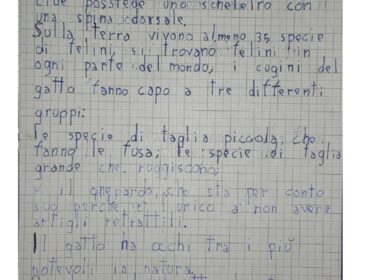 cioè possiede uno scheletro con
una spina dorsale.
Sulla terra vivono almeno 35 specie
di felini, si trovano felini in
ogni parte del mondo, i cugini del
gatto fanno capo a tre differenti
gruppi:
le specie di taglia piccola, che
fanno le fusa; le specie di taglia
grande che ruggiscono;
e il ghepardo, che sta per conto
suo perché è l'unico a non avere
artigli retrattili.
Il gatto ha occhi tra i più
notevoli in natura.